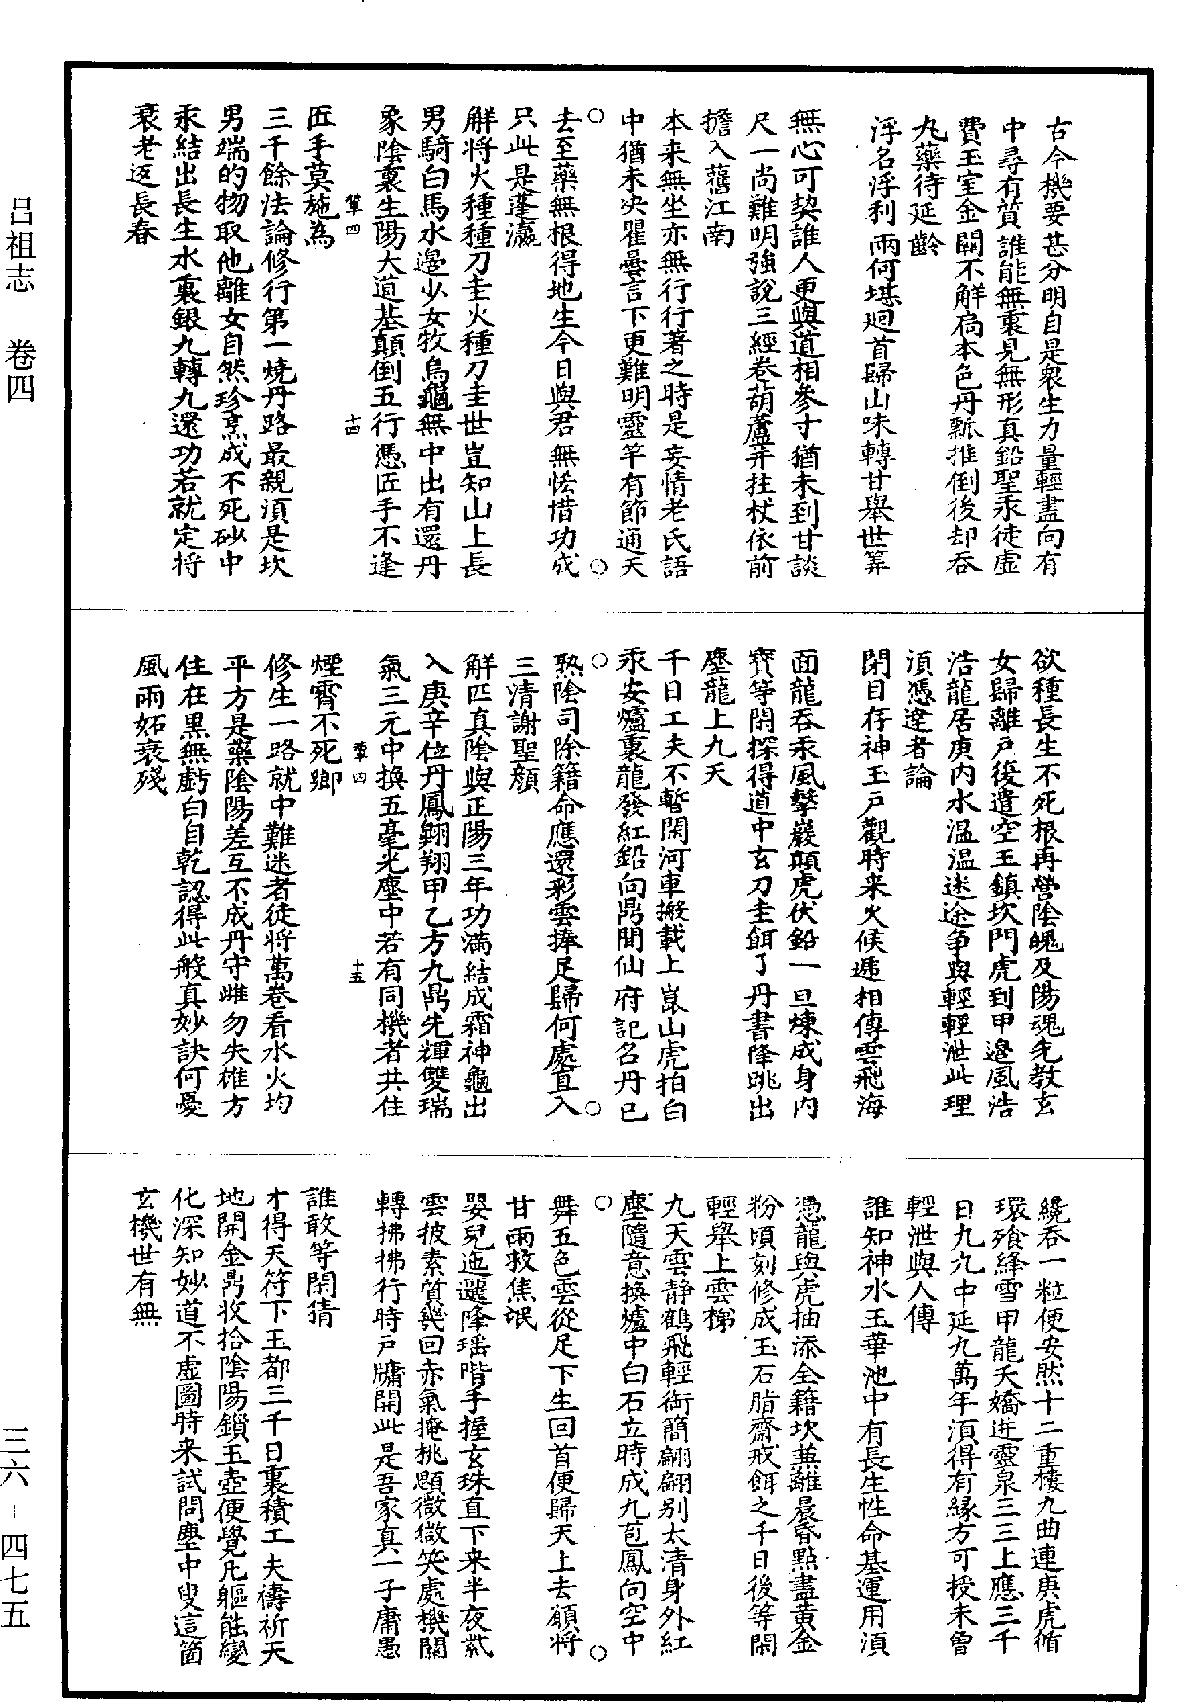 古今機要甚分明自是衆生力量輕盡向有
中尋有質誰能無裏見無形真鉛聖汞徒虛
費玉室金關不解扃本色丹瓢推倒後却吞
九藥待延齡
浮名浮利兩何堪廻首歸山味轉甘舉世筭
無心可契誰人更與道相參寸猶未到甘談
尺一尚難明強說三經卷葫蘆并拄杖依前
擔入舊江南
本来無坐亦無行行著之時是妄情老氏語
中猶未決瞿曇言下更難明靈竿有節通天
去至藥無根得地生今日與君無恡惜功成
只此是蓬瀛
○ ○
解将火種種刀圭火種刀圭世豈知山上長
男騎白馬水邊少女牧烏龜無中出有還丹
象陰裏生陽大道基顛倒五行憑匠手不逢
匠手莫施為
篿四 十四
三千餘法論修行第一燒丹路最親須是坎
男端的物取他離女自然珍烹成不死砂中
汞結出長生水裏銀九轉九還功若就定将
衰老返長春
欲種長生不死根再營陰魄及陽魂先教玄
女歸離戶後遣空王鎮坎門虎到甲邊風浩
浩龍居庚內水溫溫迷途争與輕輕泄此理
須憑達者論
閉目存神玉戶觀時来火候遞相傳雲飛海
面龍吞汞風擊巖顛虎伏鉛一旦煉成身內
寶等閑探得道中玄刀圭餌了丹書降跳出
塵龍上九天
千日工夫不暫閑河車搬載上崑山虎拍白
汞安爐裏龍發紅鉛向鼎間仙府記名丹已
熟陰司除籍命應還彩雲捧足歸何處直入
三清謝聖顏
○ ○
解匹真陰與正陽三年功滿結成霜神龜出
入庚辛位丹鳳翱翔甲乙方九鼎先輝雙瑞
氣三元中換五毫光塵中若有同機者共住
煙霄不死鄉
篿四 十五
修生一路就中難迷者徒将萬卷看水火均
平方是藥陰陽差互不成丹守雌勿失雄方
住在黑無虧白自乾認得此般真妙訣何憂
風雨妬衰殘
纔吞一粒便安然十二重樓九曲連庚虎循
環飱絳雪甲龍夭嬌迸靈泉三三上應三千
日九九中延九萬年須得有緣方可授未曾
輕泄與人傳
誰知神水玉華池中有長生性命基運用須
憑龍與虎抽添全籍坎兼離晨昏點盡黄金
粉頃刻修成玉石脂齋戒餌之千日後等閑
輕舉上雲梯
九天雲静鶴飛輕銜簡翩翩别太清身外紅
塵隨意換爐中白石立時成九苞鳳向空中
舞五色雲從足下生回首便歸天上去願将
甘雨救焦氓
○ ○
嬰兒迤邐降瑶階手握玄珠直下来半夜紫
雲披素質幾回赤氣掩桃顋微微笑處機關
轉拂拂行時戶牖開此是吾家真一子庸愚
誰敢等閑猜
才得天符下玉都三千日裏積工夫禱祈天
地開金鼎收拾陰陽鎖玉壺便覺凡軀能變
化深知妙道不虛圖時来試問塵中叟這箇
玄機世有無
呂祖志 卷四
三六－四七五